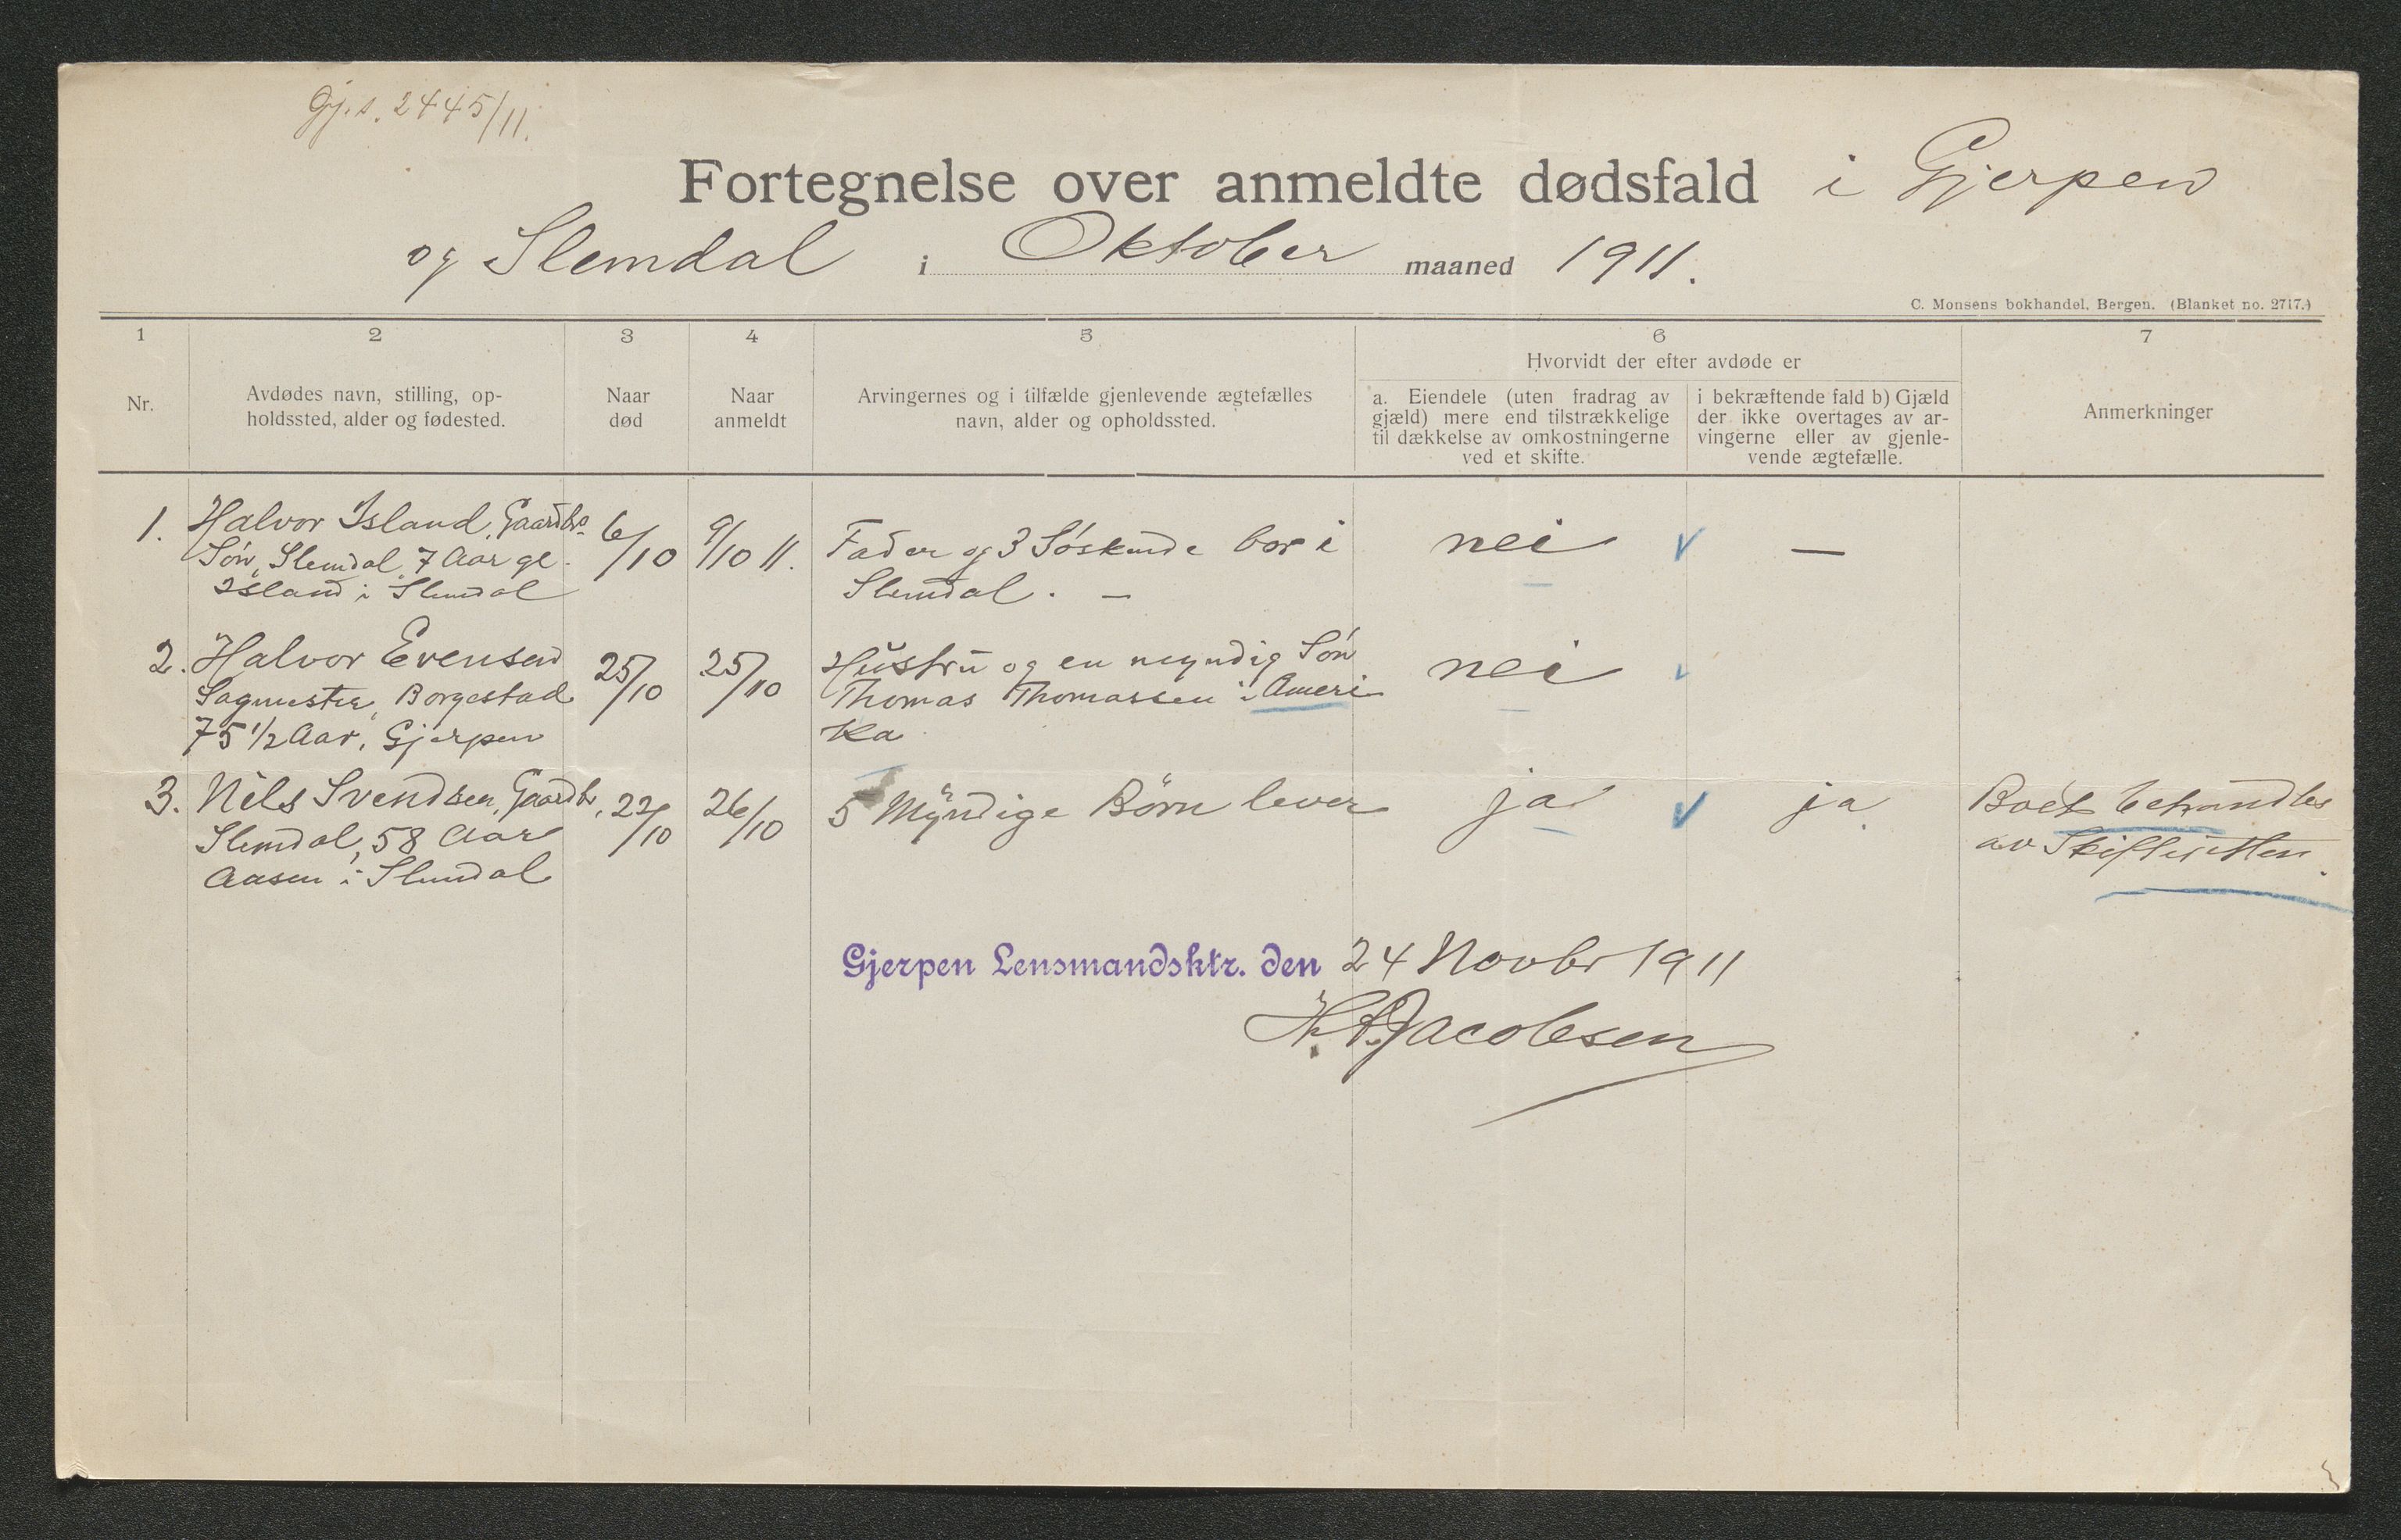 Gj.s. 2445/11.
Fortegnelse over anmeldte dødsfald i Gjerpen
og Slemdal i Oktober maaned 1911.
C. Monsens bokhandel, Bergen. (Blanket no. 2717.)
1 2 3 4 5 6 7
Hvorvidt der efter avdøde er
Nr.
Avdødes navn, stilling, op-
holdssted, alder og fødested.
Naar
død
Naar
anmeldt
Arvingernes og i tilfælde gjenlevende ægtefælles
navn, alder og opholdssted.
a. Eiendele (uten fradrag av
gjæld) mere end tilstrækkelige
til dækkelse av omkostningerne
ved et skifte.
i bekræftende fald b) Gjæld
der ikke overtages av ar-
vingerne eller av gjenle-
vende ægtefælle.
Anmerkninger
1. Halvor Island, Gaardbr. 6/10 9/10 11. Fader og 3 Søskende bor i nei —
Søn, Slemdal 7 Aar gl. Slemdal. —
Island i Slemdal
2. Halvor Evensen 25/10 25/10 Hustru og en myndig Søn nei
Sagmester, Borgestad Thomas Thomassen i Ameri
75 1/2 Aar, Gjerpen ka
3. Nils Svendsen, Gaardbr, 22/10 26/10 5 Myndige Børn lever ja ja Boet behandles
Slemdal, 58 Aar av Skifteretten.
Aasen i Slemdal
Gjerpen Lensmandsktr. den 24 Novbr 1911
H. A. Jacobsen